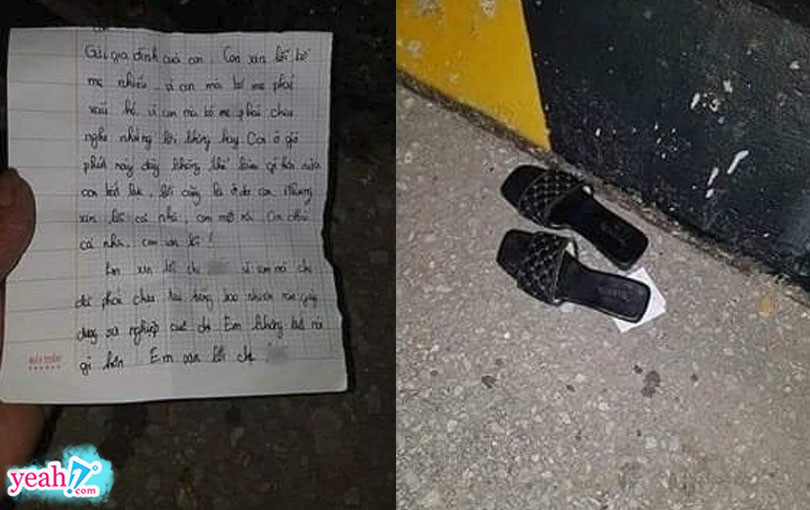 Gửi gia đình của con. Con xin lỗi bố
mẹ nhiều, vì con mà bố mẹ phải
xấu hổ, vì con mà bố mẹ phải chịu
nghe những lời không hay. Con ở giờ
phút này đây không thể làm gì hơn nữa
con bất lực, lỗi cũng là ở do con. Nhưng
xin lỗi cả nhà, con mệt rồi. Con chào
cả nhà, con xin lỗi!
xin lỗi chị vì em mà chị
đã phải chịu bao nhiêu năm gây
dựng sự nghiệp của chị. Em không biết nói
gì hơn Em xin lỗi chị
yeah1
.com